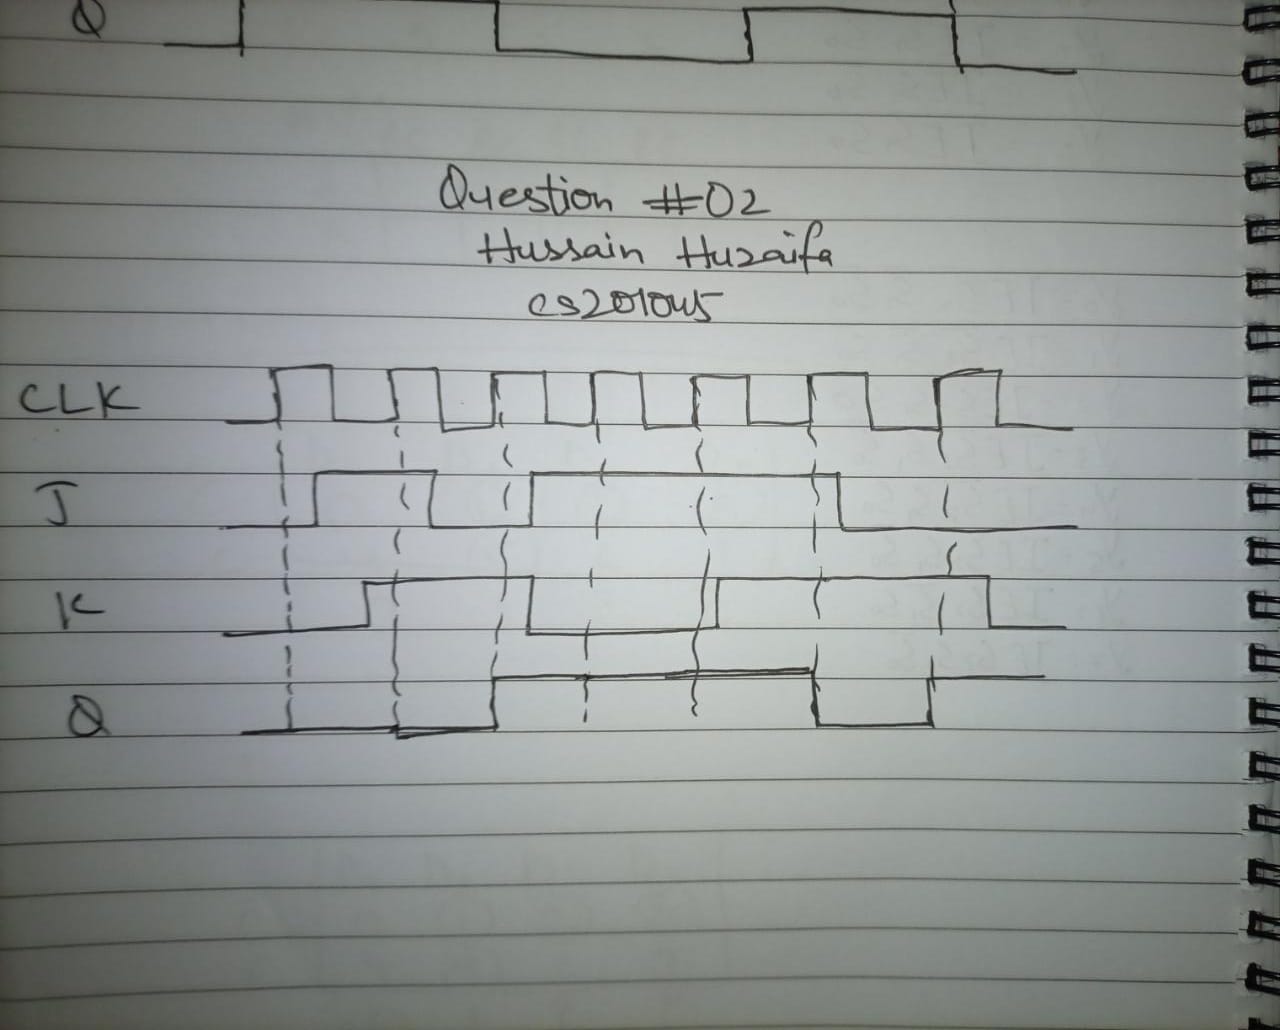 Q
Question #02
Hussain Huzaifa
cs201045
CLK
J
K
Q